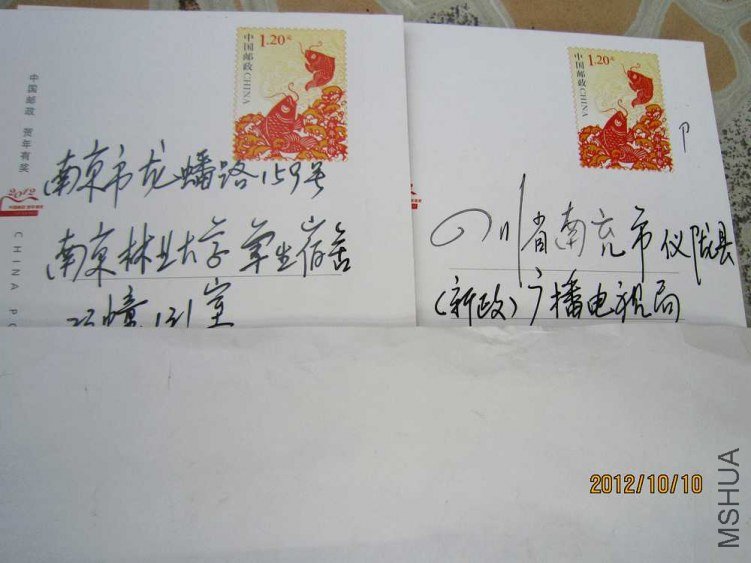 中国邮政 CHINA
1.20元
中国邮政 贺年有奖
2012
CHINA PO
南京市龙蟠路159号
南京林业大学 学生宿舍
幢131室
中国邮政 CHINA
1.20元
P
四川省南充市仪陇县
(新政)广播电视局
2012/10/10
MSHUA